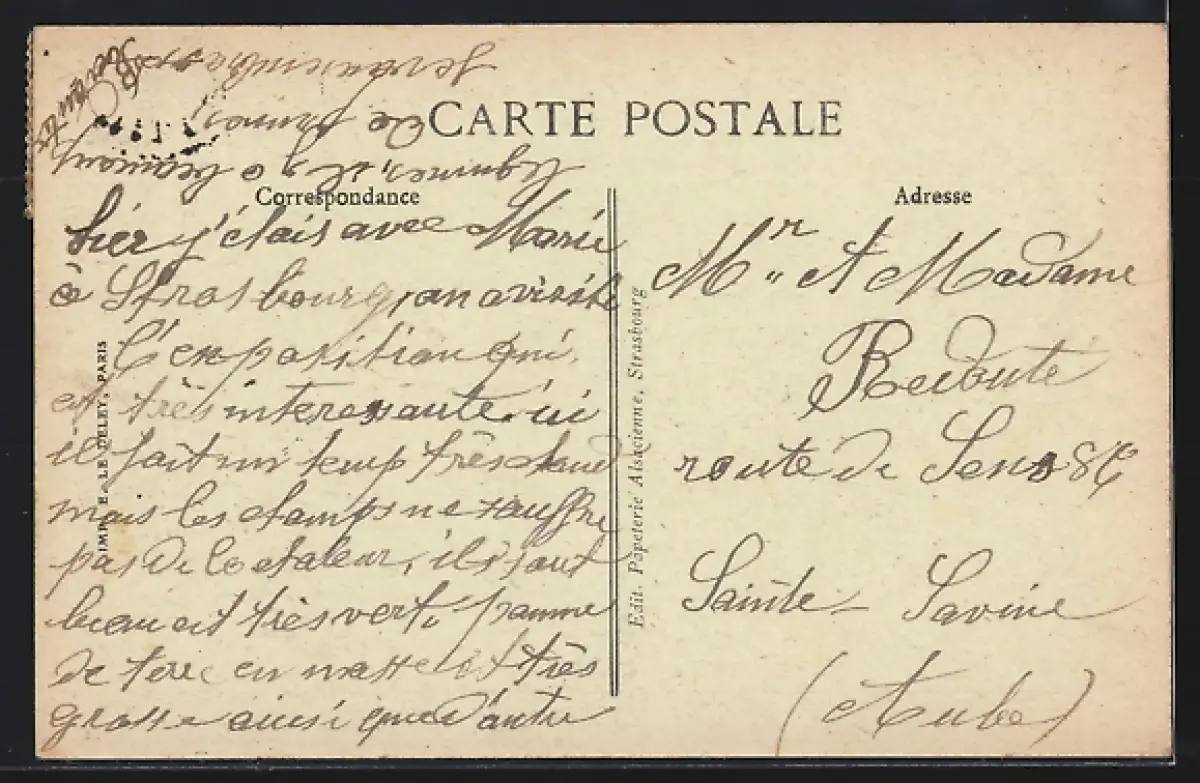 CARTE POSTALE
Correspondance
Adresse
hier j'étais avec Marie
à Strasbourg, on a visité
l'exposition qui
et très interessante, ici
il fait un temp très chaud
mais les champs ne souffre
pas de la chaleur, ils sont
beau et très vert, pomme
de terre en masse et très
grosse ainsi que d'autre
legumes, et a
de prunes,
Je vous embrasse
Mr et Madame
Redoute
route de Sens 86
Sainte-Savine
(Aube)
IMP. E. LE DELEY, PARIS
Edit. Papeterie Alsacienne, Strasbourg